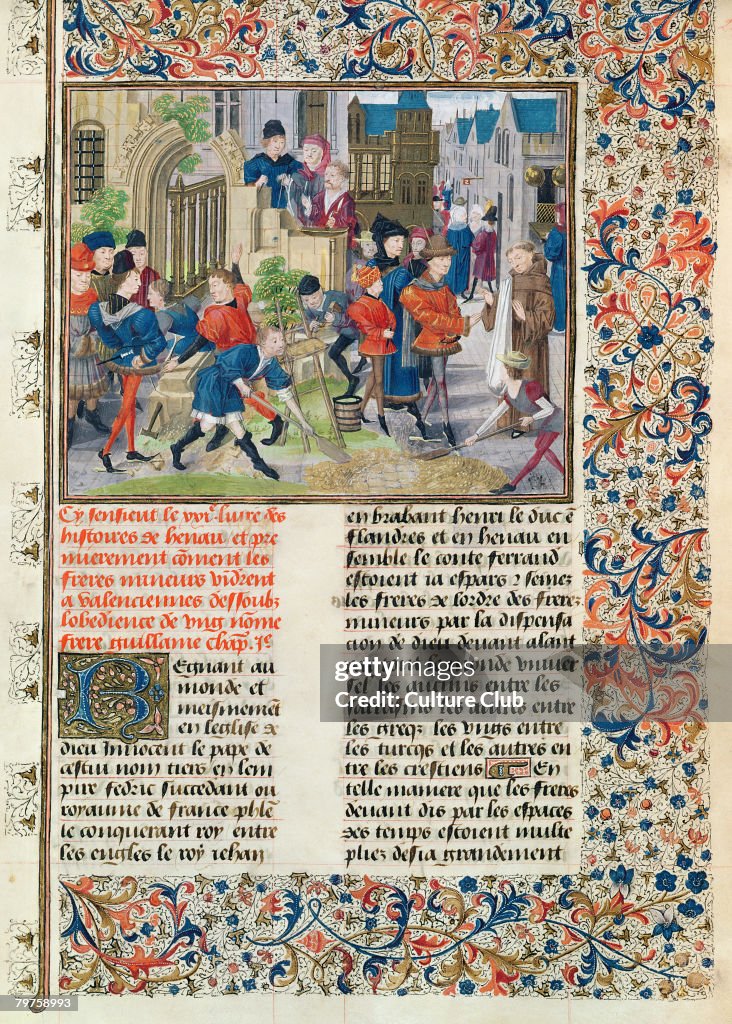 Cy sensient le xvi.e liure des
histoires de henau et pre
mierement cōment les
freres mineurs vidrent
a valenciennes dessoubz
lobedience de vng nōme
frere guillame Chap. i.e
Regnant au
monde et
meismement
en leglise de
dieu Innocent le pape de
cestui nom tiers en lem
pire fedric succedant ou
royaume de france phēe
le conquerant roy entre
les engles le roy iehan
en brabant henri le duc ē
flandres et en henau en
semble le conte ferraud
estoient ia espars z semez
les freres de lordre des freres
mineurs par la dispensa
cion de dieu deuant alant
monde vniuer
sel les aucuns entre les
les autres entre
les greqz les vngs entre
les turcqz et les autres en
tre les crestiens En
telle maniere que les freres
deuant dis par les espaces
des temps estoient multe
pliez desia grandement
gettyimages
Credit: Culture Club
79758993